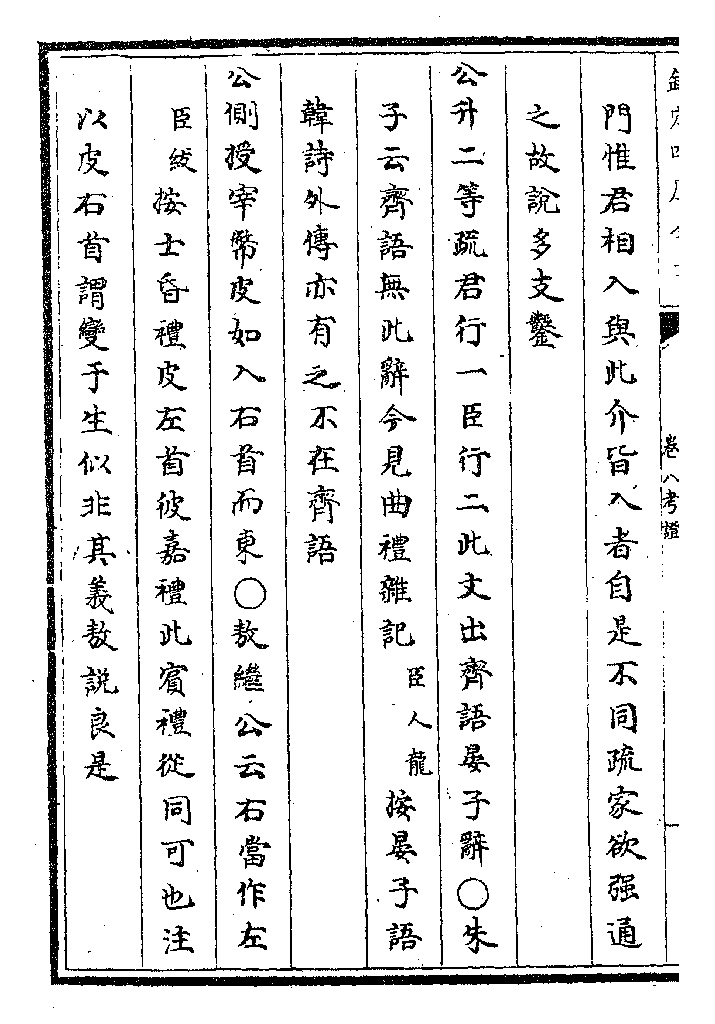 欽定四庫全書
卷八考證
門惟君相入與此介皆入者自是不同疏家欲强通
之故說多支鑿
公升二等疏君行一臣行二此文出齊語晏子辭○朱
子云齊語無此辭今見曲禮雜記臣人龍按晏子語
韓詩外傳亦有之不在齊語
公側授宰幣皮如入右首而東○敖繼公云右當作左
臣紱按士昏禮皮左首彼嘉禮此賓禮從同可也注
以皮右首謂變于生似非其義敖説良是